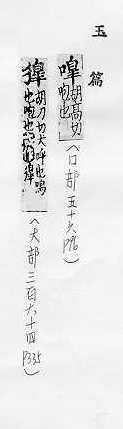 玉篇
嘷 胡高切
咆也
(口部五十六 P96)
獋 胡刀切犬呼也鳴
也咆也
(犬部三百六十四 P335)